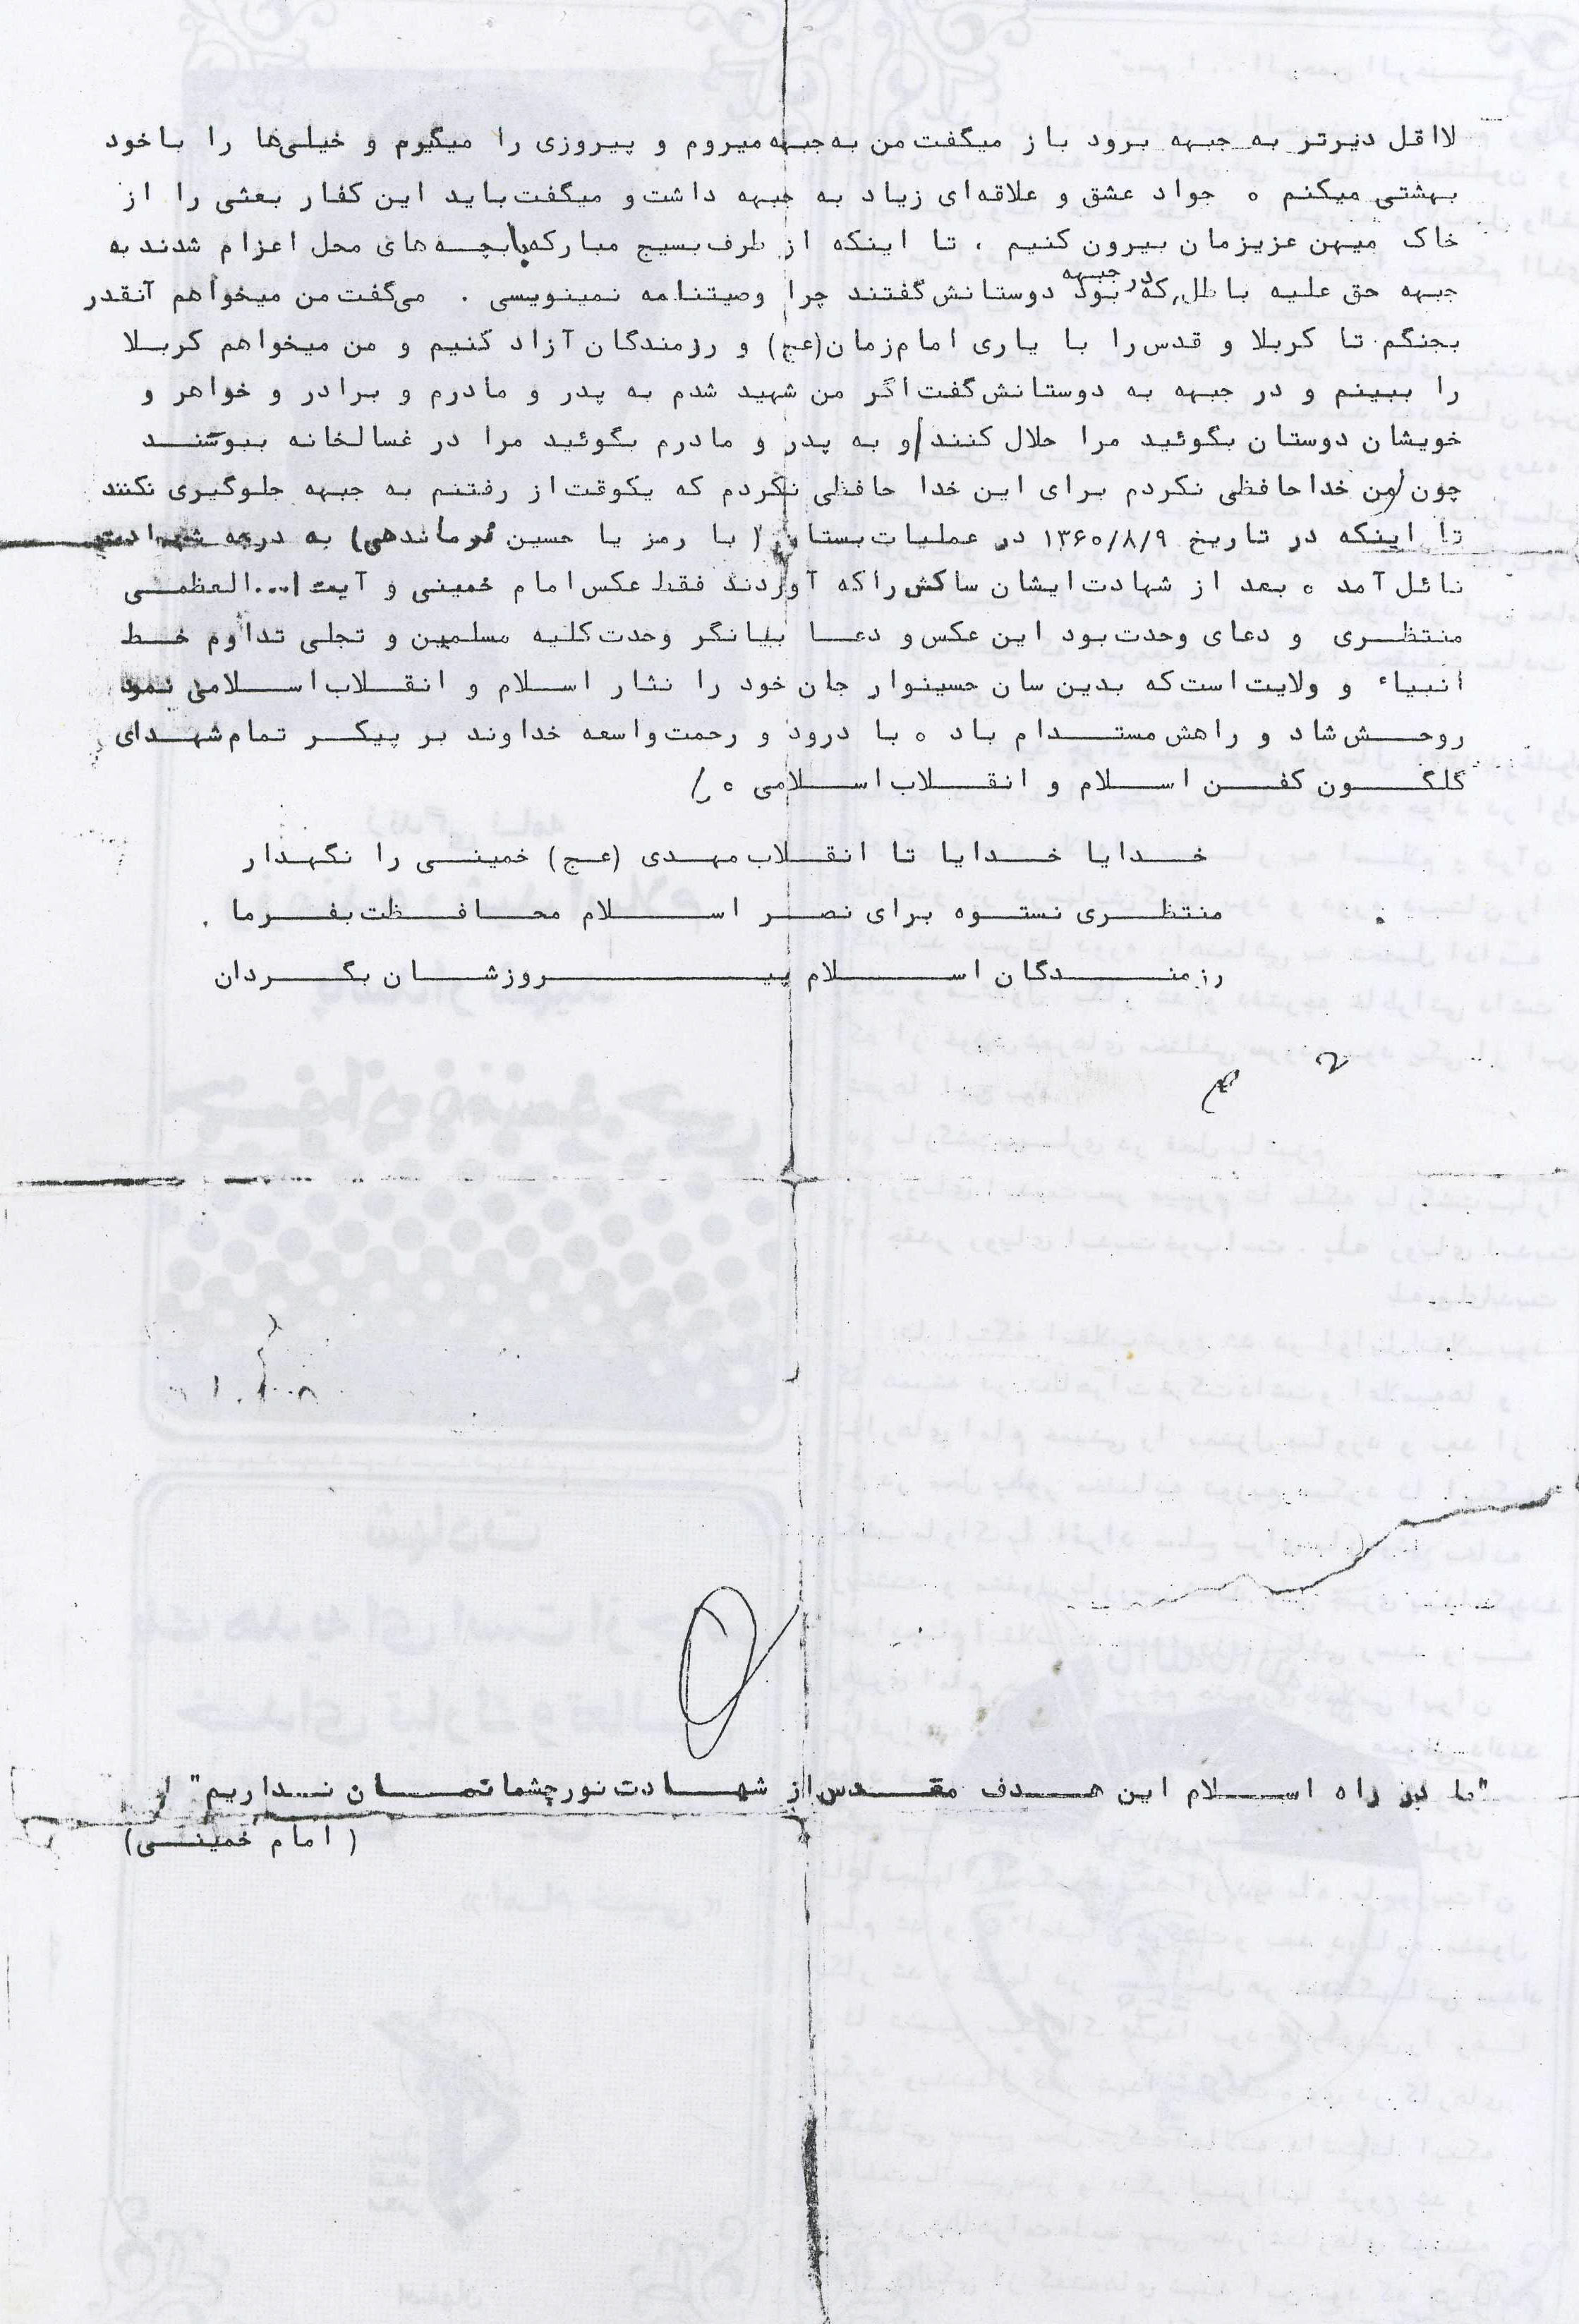 لااقل دیرتر به جبهه برود باز میگفت من به جبهه میروم و پیروزی را میگیرم و خیلی‌ها را با خود
بهشتی میکنم ٠ جواد عشق و علاقه‌ای زیاد به جبهه داشت و میگفت باید این کفار بعثی را از
خاک میهن عزیزمان بیرون کنیم ، تا اینکه از طرف بسیج مبارکه با بچه‌های محل اعزام شدند به
جبهه حق علیه باطل ، که در جبهه بود دوستانش گفتند چرا وصیتنامه نمینویسی . می‌گفت من میخواهم آنقدر
بجنگم تا کربلا و قدس را با یاری امام زمان (عج) و رزمندگان آزاد کنیم و من میخواهم کربلا
را ببینم و در جبهه به دوستانش گفت اگر من شهید شدم به پدر و مادرم و برادر و خواهر و
خویشان دوستان بگوئید مرا حلال کنند / و به پدر و مادرم بگوئید مرا در غسالخانه
چون / من خداحافظی نکردم برای این خدا حافظی نکردم که یکوقت از رفتنم به جبهه جلوگیری نکنند
تا اینکه در تاریخ ۱۳۶۰/۸/۹ در عملیات بستان ( با رمز یا حسین فرماندهی) به درجه شهادت
نائل آمد ٠ بعد از شهادت ایشان ساکش را که آوردند فقط عکس امام خمینی و آیت ا... العظمی
منتظری و دعای وحدت بود این عکس و دعا بیانگر وحدت کلیه مسلمین و تجلی تداوم خط
انبیاء و ولایت است که بدین سان حسینوار جان خود را نثار اسلام و انقلاب اسلامی نمود
روحش شاد و راهش مستدام باد ٠ با درود و رحمت واسعه خداوند بر پیکر تمام شهدای
گلگون کفن اسلام و انقلاب اسلامی ٠ /
خدایا خدایا تا انقلاب مهدی (عج) خمینی را نگهدار
منتظری نستوه برای نصر اسلام محافظت بفرما .
رزمندگان اسلام پیروزشان بگردان
"ما در راه اسلام این هدف مقدس از شهادت نورچشمانمان نداریم"
( امام خمینی)